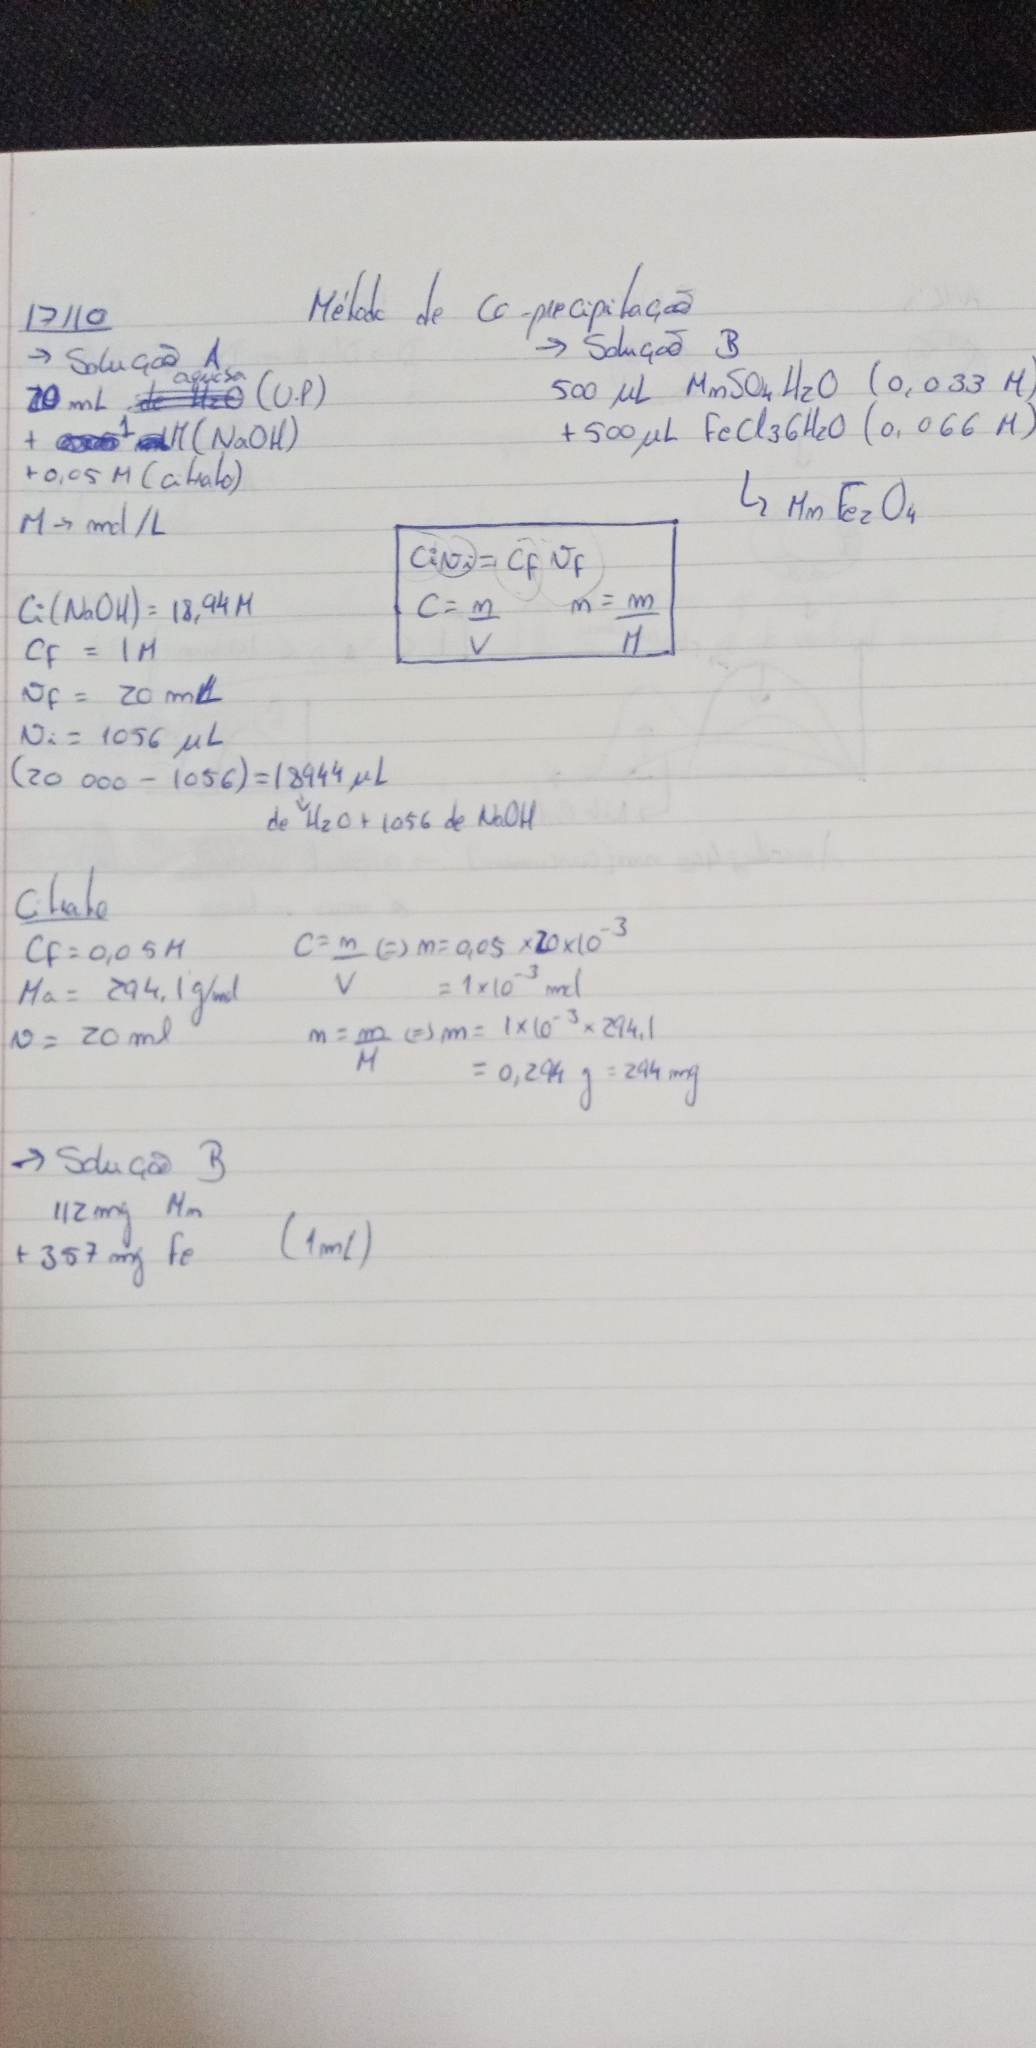 17/10
Método de Co-precipitação
→ Solução A
20 mL aquosa (U.P)
+ 1 M (NaOH)
+ 0,05 M (citrato)
M → mol/L
→ Solução B
500 µL MnSO4H2O (0,033 M)
+500 µL FeCl36H2O (0,066 M)
↳ MnFe2O4
CiVi = Cf Vf
C = n/V n = m/M
Ci(NaOH) = 18,94 M
Cf = 1 M
Vf = 20 mL
Vi = 1056 µL
(20 000 - 1056) = 18944 µL
de H2O + 1056 de NaOH
Citrato
Cf = 0,05 M
Ma = 294,1 g/mol
V = 20 ml
C = n/V (=) n = 0,05 × 20 × 10⁻³
= 1×10⁻³ mol
n = m/M (=) m = 1×10⁻³ × 294,1
= 0,294 g = 294 mg
→ Solução B
112 mg Mn
+ 357 mg Fe (1 mL)